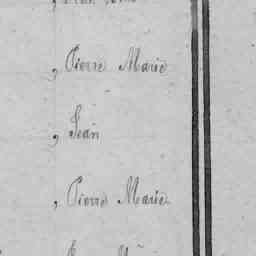 , Pierre Marie
, Jean
, Pierre Marie